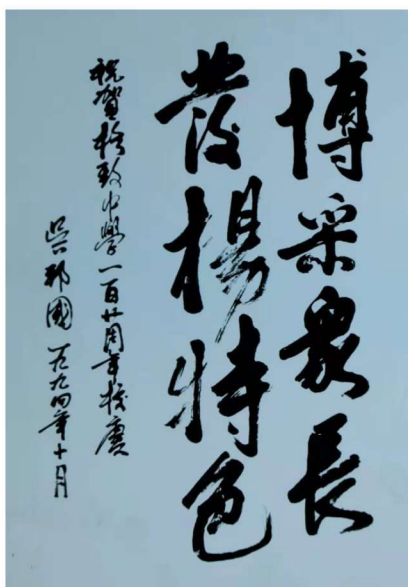 博采眾長
發楊特色
祝賀格致中學一百廿周年校慶
吴邦國 一九九四年十月